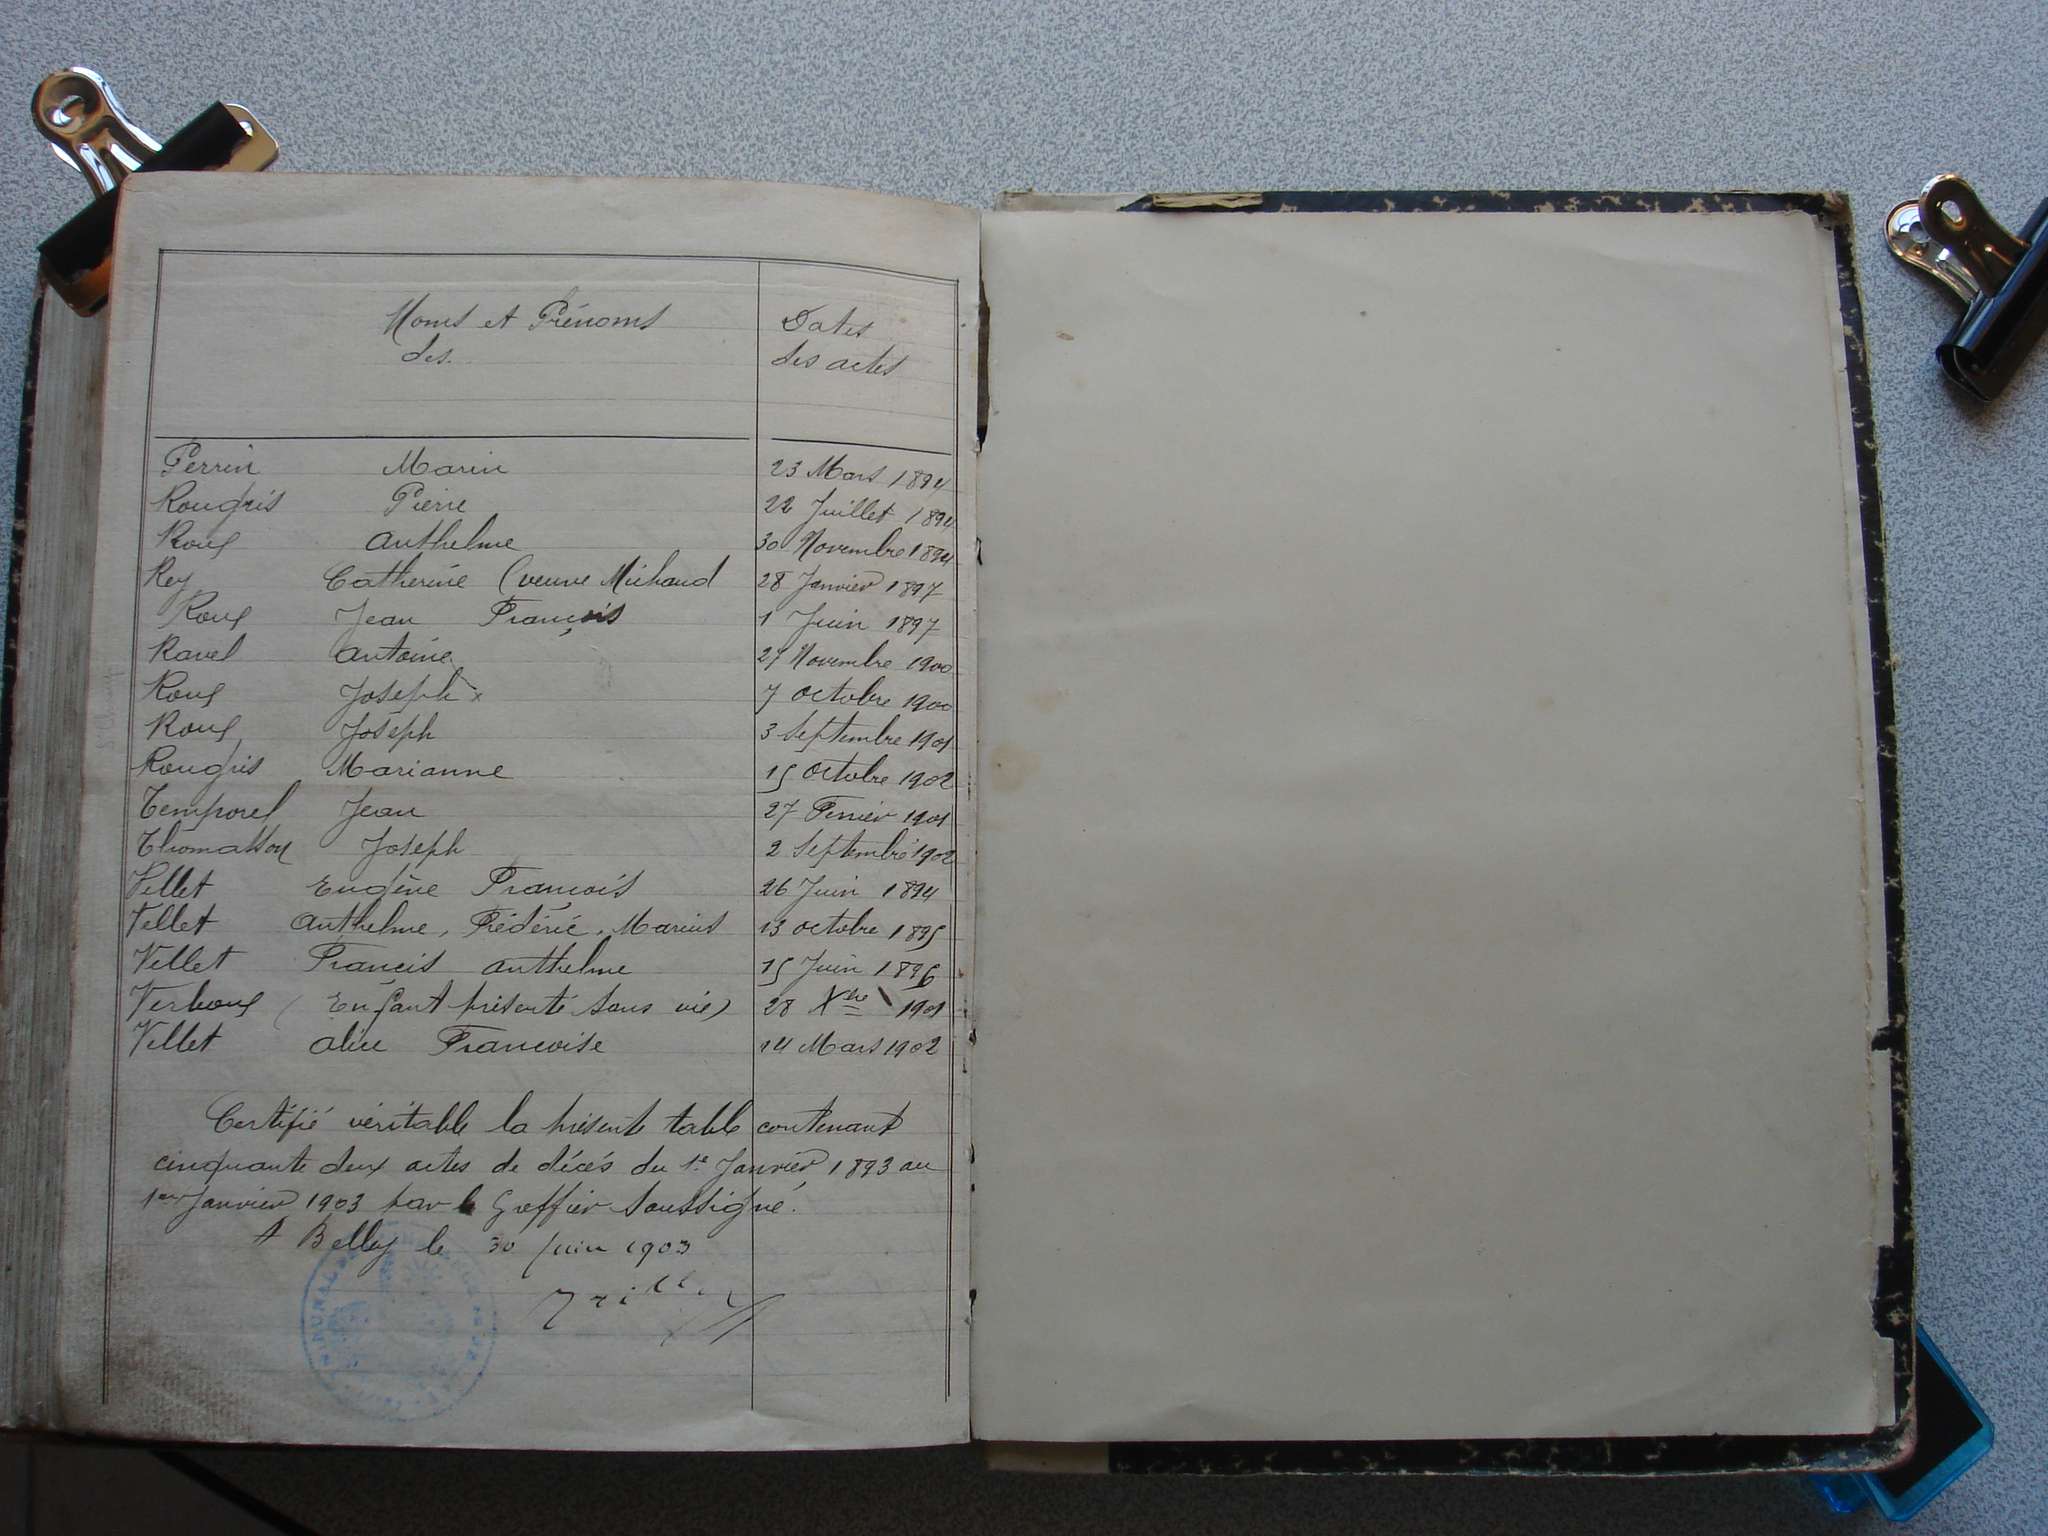 Noms et Prénoms Dates
des des actes
Perrin Marin 23 Mars 1894
Rougris Pierre 22 Juillet 1894
Roux Anthelme 30 Novembre 1894
Rey Catherine (veuve Michaud 28 Janvier 1897
Roux Jean François 1 Juin 1897
Ravel Antoine 27 Novembre 1900
Roux Joseph x 7 Octobre 1900
Roux Joseph 3 Septembre 1901
Rougris Marianne 15 Octobre 1902
Temporel Jean 27 Fevrier 1901
Thomasson Joseph 2 Septembre 1902
Vellet Eugène François 26 Juin 1894
Vellet Anthelme, Frédéric, Marius 13 octobre 1895
Vellet Francis Anthelme 15 Juin 1896
Verboux (Enfant présenté sans vie) 28 Xbre 1901
Vellet Alice Francoise 14 Mars 1902
Certifié véritable la présente table contenant
cinquante deux actes de décès du 1er Janvier 1893 au
1er Janvier 1903 par le Greffier soussigné.
A Belley le 30 Juin 1903
TRIBUNAL